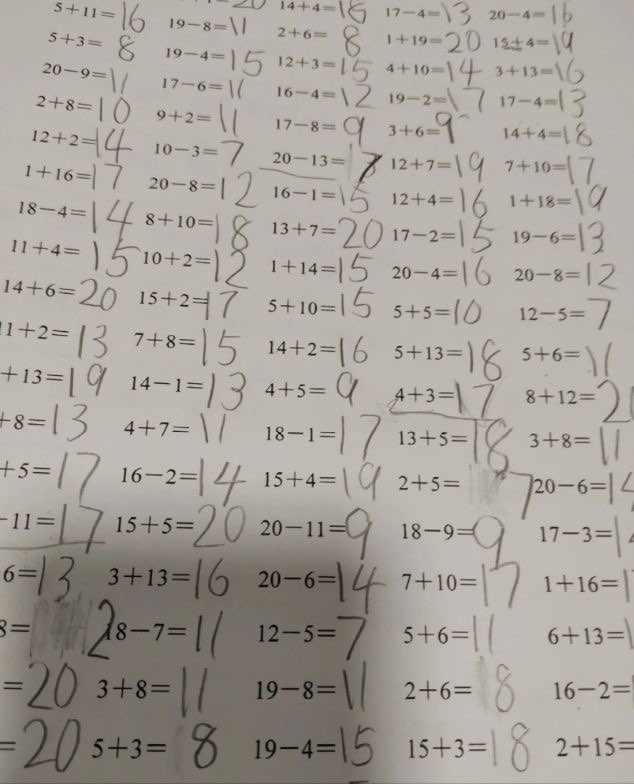 14+4=18 17-4=13 20-4=16
5+11=16 19-8=11 2+6=8 1+19=20 15+4=19
5+3=8 19-4=15 12+3=15 4+10=14 3+13=16
20-9=11 17-6=11 16-4=12 19-2=17 17-4=13
2+8=10 9+2=11 17-8=9 3+6=9 14+4=18
12+2=14 10-3=7 20-13= 12+7=19 7+10=17
1+16=17 20-8=12 16-1=15 12+4=16 1+18=19
18-4=14 8+10=18 13+7=20 17-2=15 19-6=13
11+4=15 10+2=12 1+14=15 20-4=16 20-8=12
14+6=20 15+2=17 5+10=15 5+5=10 12-5=7
1+2=13 7+8=15 14+2=16 5+13=18 5+6=11
+13=19 14-1=13 4+5=9 4+3=17 8+12=2
+8=13 4+7=11 18-1=17 13+5=18 3+8=11
+5=17 16-2=14 15+4=19 2+5=7 20-6=14
-11=17 15+5=20 20-11=9 18-9=9 17-3=1
6=13 3+13=16 20-6=14 7+10=17 1+16=1
8=12 18-7=11 12-5=7 5+6=11 6+13=1
=20 3+8=11 19-8=11 2+6=8 16-2=
=20 5+3=8 19-4=15 15+3=18 2+15=